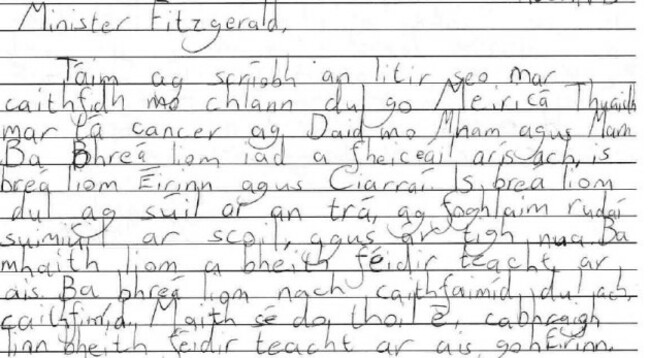 Minister Fitzgerald,
Táim ag scríobh an litir seo mar
caithfidh mo chlann dul go Meiricá Thuaidh
mar tá cancer ag Daid mo Mham agus Mam
Ba Bhreá liom iad a fheiceáil arís ach, is
breá liom Éirinn agus Ciarraí. Is breá liom
dul ag súil ar an trá, ag foghlaim rudaí
suimiúil ar scoil, agus ár tigh nua. Ba
mhaith liom a bheith féidir teacht ar
ais. Ba bhreá liom nach caithfaimid dul ach,
caithfimid. Maith sé do thoil é, cabhraigh
linn bheith féidir teacht ar ais go hÉirinn.